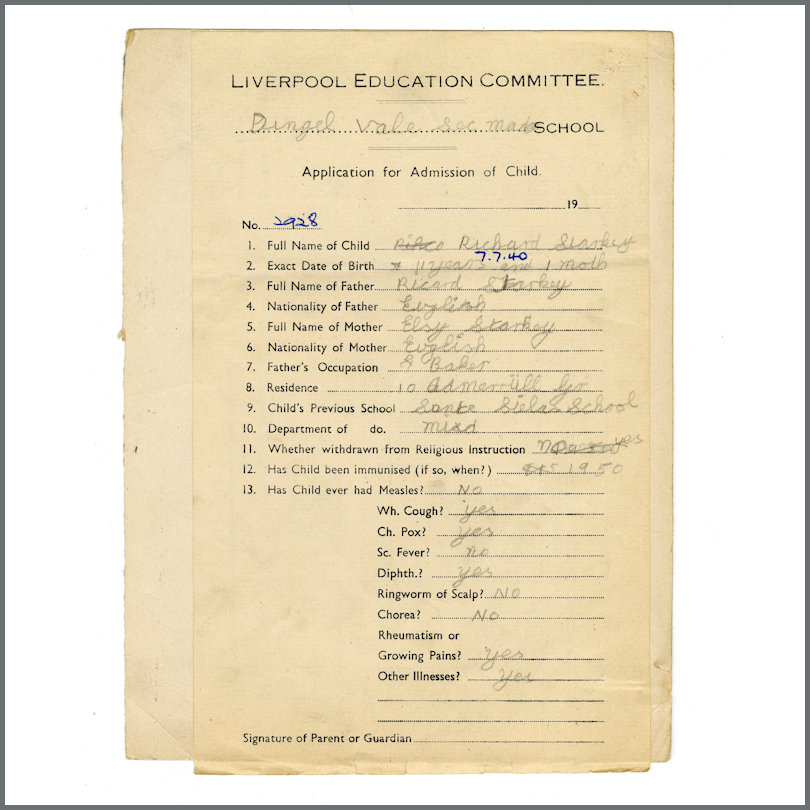 LIVERPOOL EDUCATION COMMITTEE.
Dingel Vale Sec SCHOOL
Application for Admission of Child.
19
No. 2928
1. Full Name of Child Richard Starkey
7.7.40
2. Exact Date of Birth 11 years and 1 moth
3. Full Name of Father Ricard Starkey
4. Nationality of Father English
5. Full Name of Mother Elsy Starkey
6. Nationality of Mother English
7. Father's Occupation Baker
8. Residence 10
9. Child's Previous School Sante Sielas School
10. Department of do. mixd
11. Whether withdrawn from Religious Instruction yes
12. Has Child been immunised (if so, when?) 1950
13. Has Child ever had Measles? No
Wh. Cough? yes
Ch. Pox? yes
Sc. Fever? no
Diphth.? yes
Ringworm of Scalp? NO
Chorea? NO
Rheumatism or
Growing Pains? yes
Other Illnesses? yes
Signature of Parent or Guardian